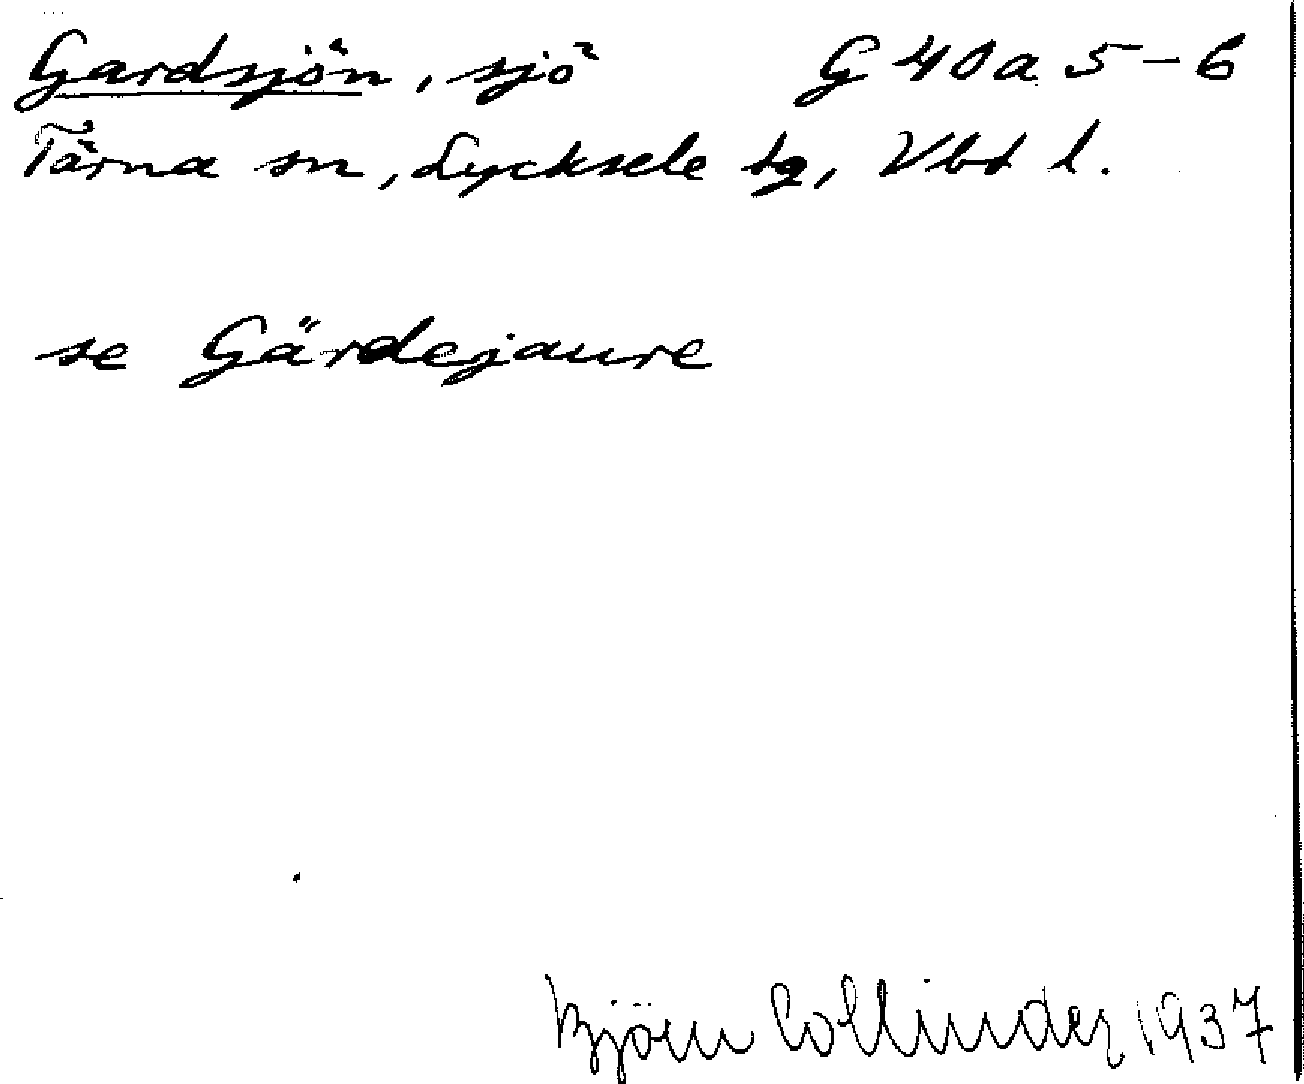 Gardsjön, sjö G 40a 5-6
Tärna sn, Lycksele tg, Vbt l.
se Gärdejaure
Björn Collinder 1937